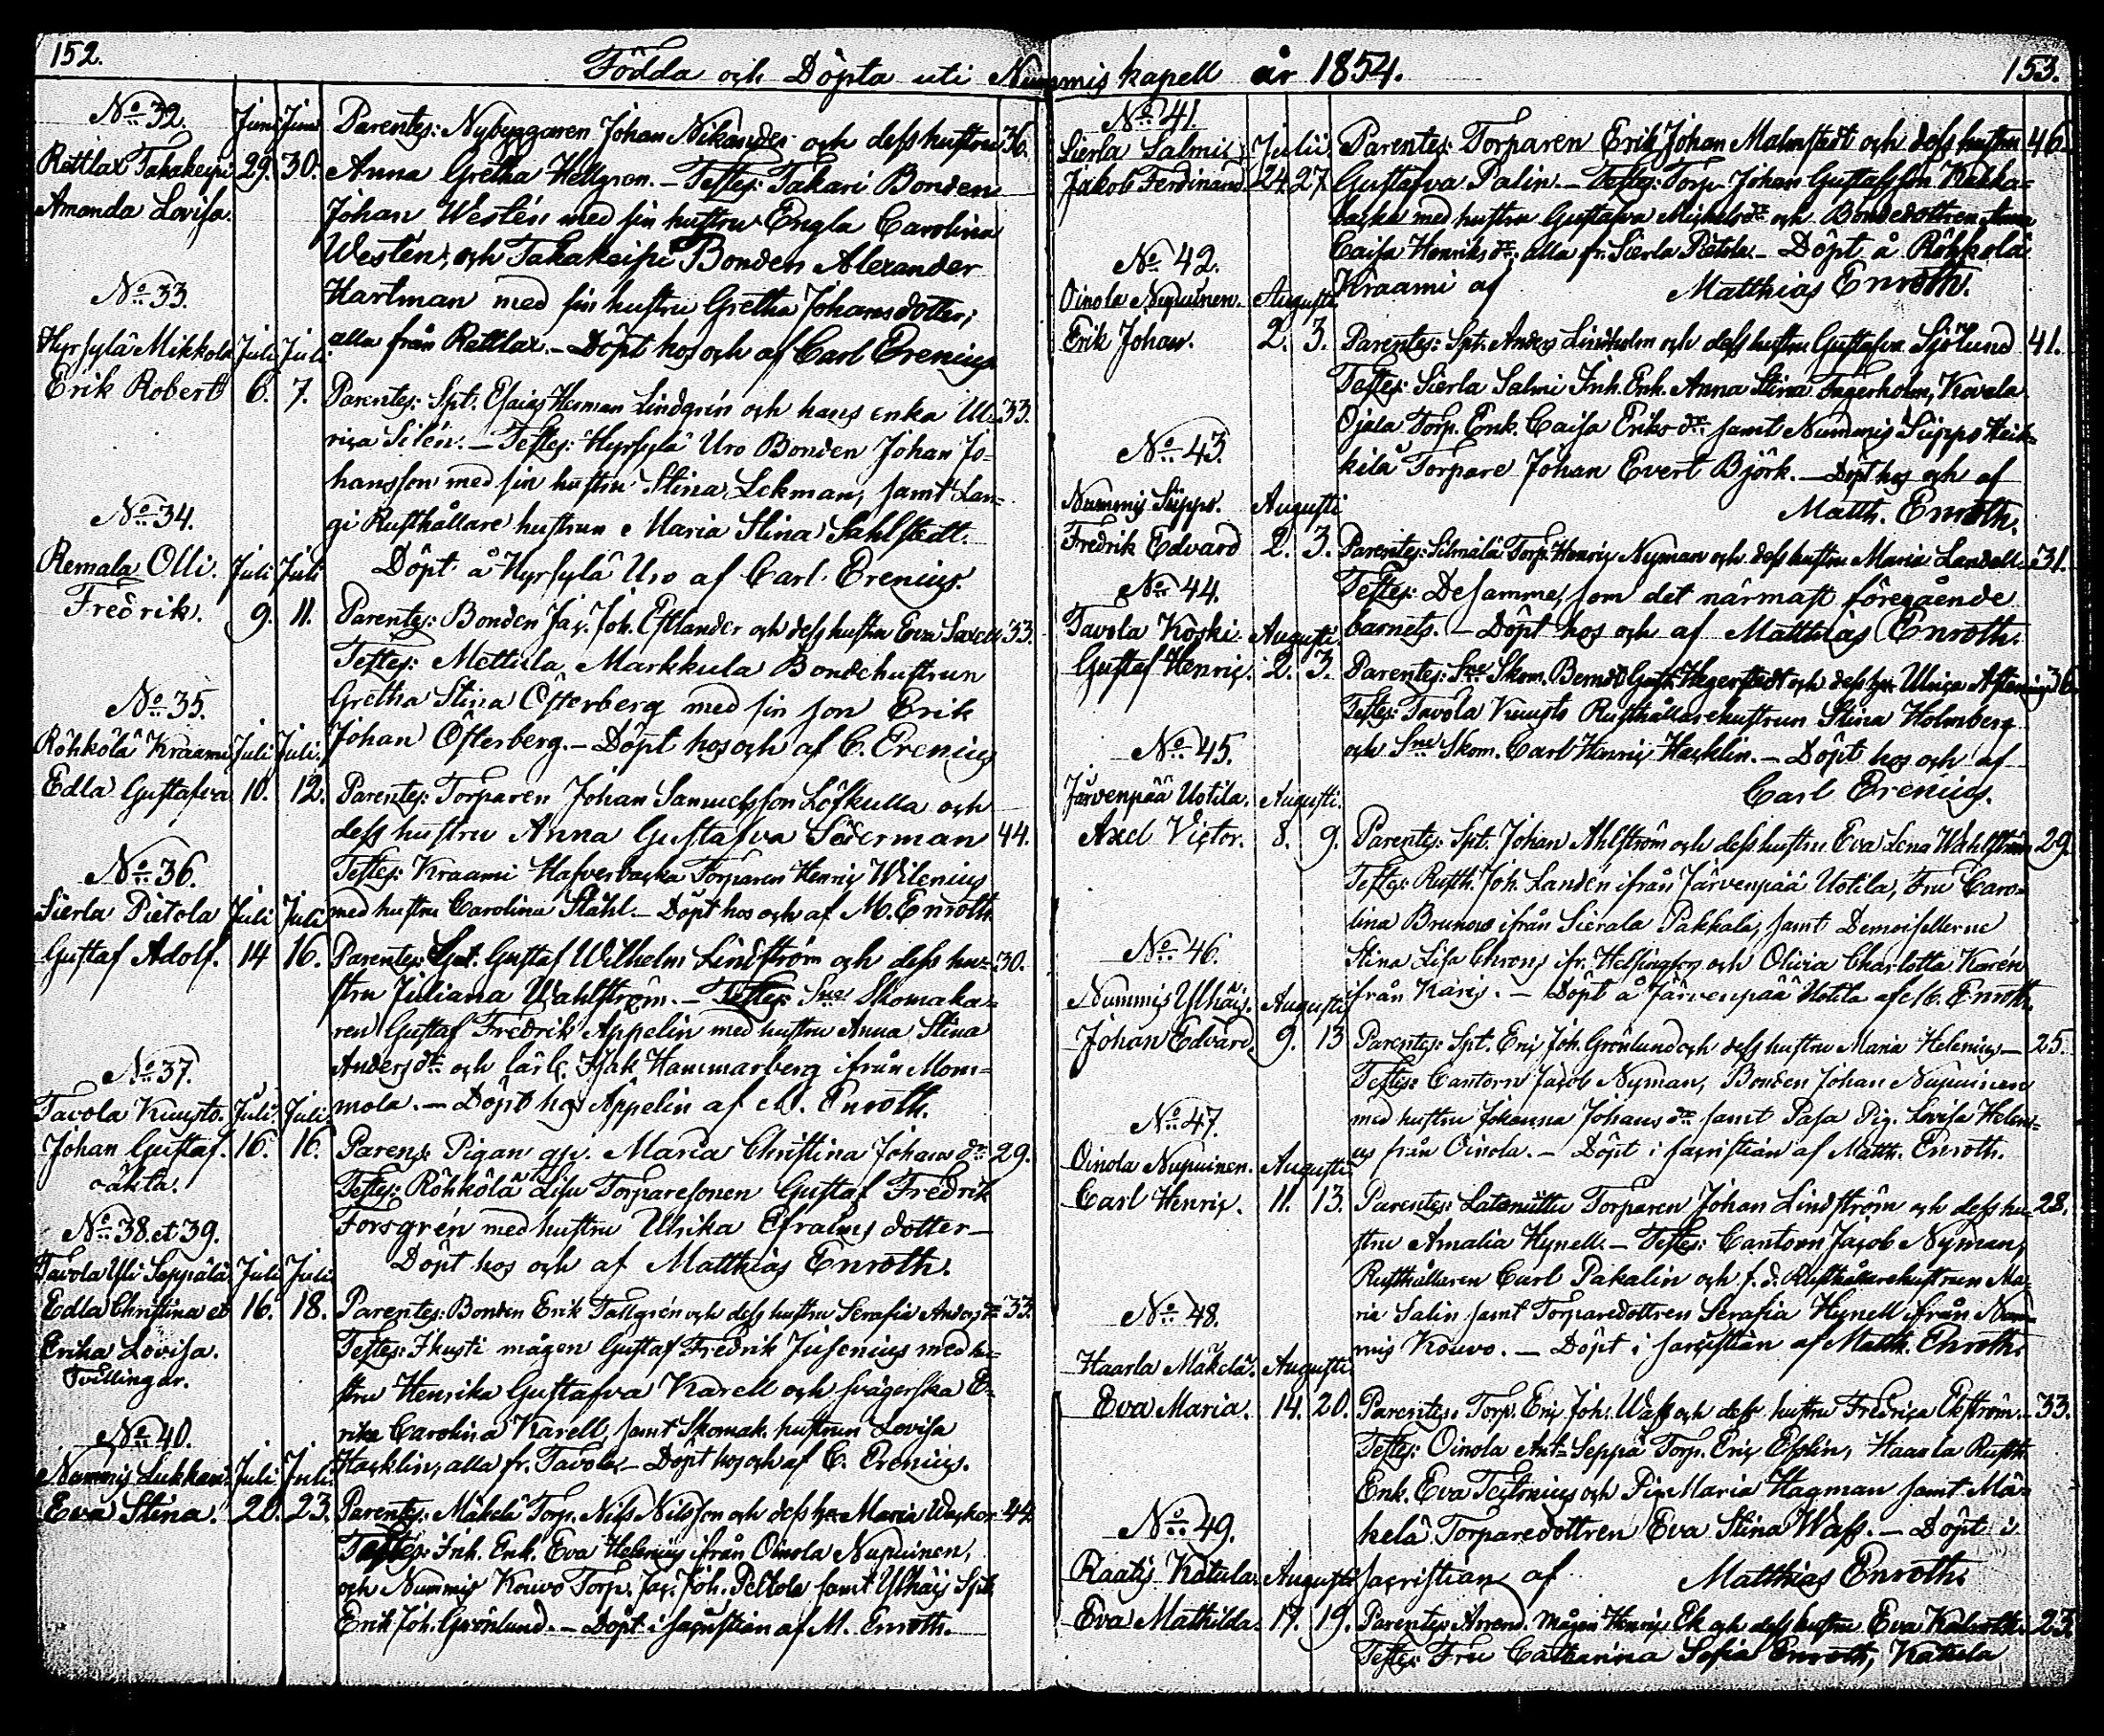 152.
Födda och Döpta uti Nummis kapell år 1854.
153.
No 32.
Rettlax Takakeisi
Amanda Lovisa.
Juni Juni
29. 30.
Parentes: Nybyggaren Johan Nikander och dess hustru 36.
Anna Gretha Hellgren. – Testes: Takari Bonden
Johan Westén med sin hustru Engla Carolina
Westén, och Takakeisi Bonden Alexander
Hartman med sin hustru Gretha Johansdotter;
alla från Rettlax. – Döpt hos och af Carl Erenius
No 33.
Hyrsylä Mikkola Juli Juli
Erik Robert 6. 7.
Parentes: Spt. Esaias Herman Lindgrén och hans enka Ul- 33.
rica Silén. – Testes: Hyrsylä Uro Bonden Johan Jo-
hansson med sin hustru Stina Lekman, samt Lan-
gi Rusthållare hustrun Maria Stina Sahlstedt.
Döpt å Hyrsylä Uro af Carl Erenius.
No 34.
Remala Olli. Juli Juli
Fredrik. 9. 11.
Parentes: Bonden Jac. Joh. Estlander och dess hustru Eva Saxell 33.
Testes: Mettula Markkula Bondehustrun
Gretha Stina Österberg med sin son Erik
Johan Österberg. – Döpt hos och af C. Erenius
No 35.
Röhkölä Kraami Juli Juli.
Edla Gustafva 10. 12.
Parentes: Torparen Johan Samuelsson Löfkulla och
dess hustru Anna Gustafva Söderman 44.
Testes: Kraami Hafverbacka Torparen Henric Wilenius
med hustru Carolina Ståhl. – Döpt hos och af M. Enroth
No 36.
Sierla Pietola Juli Juli
Gustaf Adolf. 14 16.
Parentes: Spt. Gustaf Wilhelm Lindström och dess hu- 30.
stru Juliana Wahlström. – Testes: Sne Skomaka-
ren Gustaf Fredrik Appelin med hustru Anna Stina
Andersdr och lärl. Isak Hammarberg ifrån Mom-
mola. – Döpt hos Appelin af M. Enroth.
No 37.
Tavola Kuusto. Juli Juli.
Johan Gustaf. 16. 16.
oäkta.
Parens: Pigan qv. Maria Christina Johansdr 29.
Testes: Röhkölä Lisu Torparesonen Gustaf Fredrik
Forsgrén med hustru Ulrika Efraims dotter –
Döpt hos och af Matthias Enroth.
No 38. et 39.
Tavola Yli Seppälä Juli Juli
Edla Christina et 16. 18.
Erika Lovisa.
Tvillingar.
Parentes: Bonden Erik Tallgrén och dess hustru Serafia Andersdr 33.
Testes: Ikusti mågen Gustaf Fredrik Jusenius med hu-
stru Henrika Gustafva Karell och svägerska E-
rika Carolina Karell, samt Skomak. hustrun Lovisa
Hacklin, alla fr. Tavola – Döpt hos och af C. Erenius.
No 40.
Nummis Lukkari. Juli Juli.
Eva Stina. 20. 23.
Parentes: Mäkelä Torp. Nils Nilsson och dess hu Maria 44.
Testes: Inh. Enk. Eva Helenius ifrån Oinola Nupuinen,
och Nummis Kouvo Torp. Jac. Joh. Peltola samt Ylhäis Spt.
Erik Joh. Grönlund. – Döpt i sacristian af M. Enroth.
No 41
Sierla Salmi Julii
Jakob Ferdinand 24. 27
Parentes: Torparen Erik Johan Malmstedt och dess hustru 46.
Gustafva Palin – Testes: Torp. Johan Gustafsson
backa med hustru Gustafva Michelsdr och Bondedottren Anna
Caisa Henriksdr; alla fr. Sierla – Döpt å Röhkölä
Kraami af Matthias Enroth.
No 42.
Oinola Nupuinen. Augusti
Erik Johan. 2. 3.
Parentes: Spt. Anders Lindholm och dess hustru Gustafva Sjölund 41.
Testes: Sierla Salmi Inh. Enk. Anna Stina Fagerholm, Kovela
Ojala Torp. Enk. Caisa Eriksdr samt Nummis Suppo Heik-
kilä Torpare Johan Evert Björk. – Döpt hos och af
Matth. Enroth.
No 43.
Nummis Suppo. Augusti
Fredrik Edvard 2. 3.
Parentes: Torp. Henric Nyman och dess hustru Maria Landell 31.
Testes: Desamme, som det närmast föregående
barnets. – Döpt hos och af Matthias Enroth.
No 44.
Tavola Koski. Augusti.
Gustaf Henric. 2. 3.
Parentes: Sne Skom. Berndt Gust. Hegerstedt och dess hu Ulrica 36
Testes: Tavola Kuusto Rusthållarehustrun Stina Holmberg
och Sne Skom. Carl Henric Hacklin. – Döpt hos och af
Carl Erenius.
No 45.
Järvenpää Uotila. Augusti.
Axel Victor. 8. 9.
Parentes: Spt. Johan Ahlström och dess hustru Eva Lena Wahlström 29.
Testes: Rusth. Joh. Landén ifrån Järvenpää Uotila, Fru Caro-
lina Brunou ifrån Sierala Pakkala, samt Demoisellerne
Stina Lisa Chrons ifr. Helsingfors och Olivia Charlotta Karén
från Karis. – Döpt å Järvenpää Uotila af M. Enroth.
No 46.
Nummis Ylhäis. Augusti
Johan Edvard. 9. 13
Parentes: Spt. Eric Joh. Grönlund och dess hustru Maria Helenius – 25.
Testes: Cantorn Jacob Nyman, Bonden Johan Nupuinen
med hustru Johanna Johansdr samt Pasa Pig. Lovisa Heleni-
us från Oinola. – Döpt i sacristian af Matth. Enroth.
No 47.
Oinola Nupuinen. Augusti.
Carl Henric. 11. 13.
Parentes: Latomüttu Torparen Johan Lindström och dess hu- 28.
stru Amalia Hynell. – Testes: Cantorn Jacob Nyman,
Rusthållaren Carl Pakalin och f. d. Rusthållarehustrun Ma-
ria Salin samt Torparedottren Serafia Hynell ifrån Num-
mis Kouvo. – Döpt i sacristian af Matth. Enroth.
No 48.
Haarla Mäkelä. Augusti.
Eva Maria. 14. 20.
Parentes: Torp. Eric Joh. Wass och dess hustru Fredrica Ekström. 33.
Testes: Oinola Ant-Seppä Torp. Eric Esslin, Haarla Rusth.
Enk. Eva och Pig. Maria Hagman samt Mä-
kelä Torparedottren Eva Stina Wass. – Döpt i
sacristian af Matthias Enroth.
No 49.
Raatis Katula. Augusti
Eva Mathilda. 17. 19.
Parentes Arrend. Mågen Henric Ek och dess hustru Eva 23.
Testes: Fru Catharina Sofia Enroth, Katula